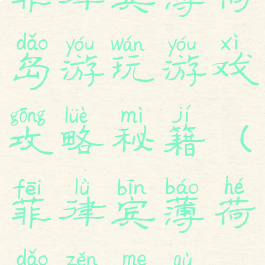 菲律宾薄荷
dǎo yóu wán yóu xì
岛游玩游戏
gōng lüè mì jí
攻略秘籍(
fēi lǜ bīn báo hé
菲律宾薄荷
dǎo zěn me qù